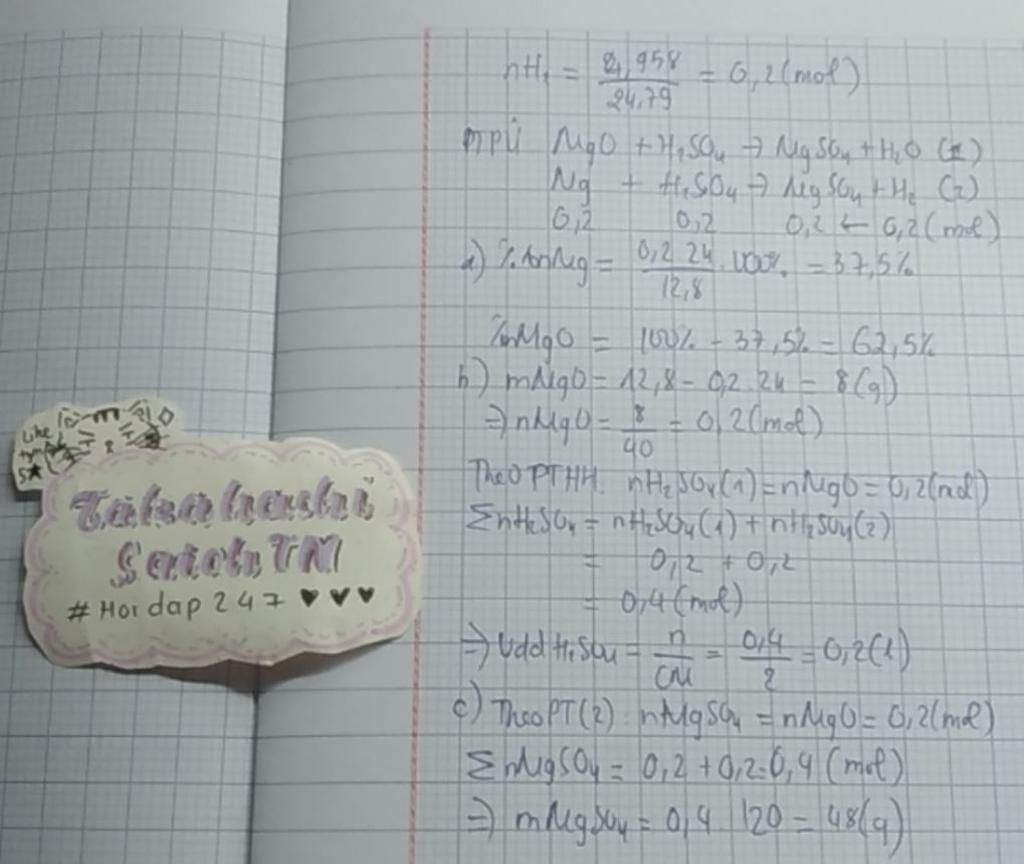 nH₂ = 4,958/24,79 = 0,2(mol)
MgO + H₂SO₄ → MgSO₄ + H₂O (1)
Mg + H₂SO₄ → MgSO₄ + H₂ (2)
0,2 0,2 0,2 ← 0,2(mol)
a) %mMg = 0,2.24/12,8 . 100% = 37,5%
%mMgO = 100% - 37,5% = 62,5%
b) mMgO = 12,8 - 0,2.24 = 8(g)
=> nMgO = 8/40 = 0,2(mol)
Theo PTHH: nH₂SO₄(1) = nMgO = 0,2(mol)
ΣnH₂SO₄ = nH₂SO₄(1) + nH₂SO₄(2)
= 0,2 + 0,2
= 0,4(mol)
=> VddH₂SO₄ = n/CM = 0,4/2 = 0,2(l)
c) Theo PT(2): nMgSO₄ = nMgO = 0,2(mol)
ΣnMgSO₄ = 0,2 + 0,2 = 0,4 (mol)
=> mMgSO₄ = 0,4.120 = 48(g)
Like
TM
# Hoidap 247 ♥ ♥ ♥